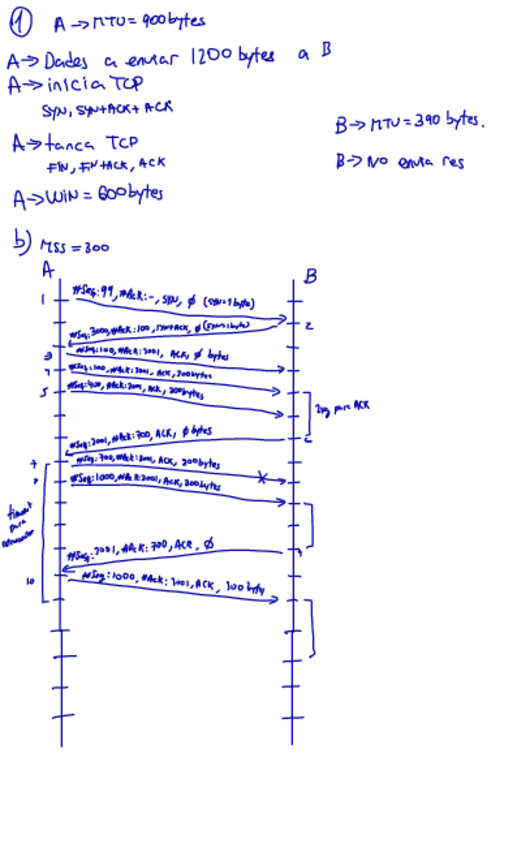 ① A → MTU = 900 bytes
A → Dades a enviar 1200 bytes a B
A → inicia TCP
SYN, SYN+ACK + ACK
B → MTU = 340 bytes.
A → tanca TCP
FIN, FIN+ACK, ACK
B → No envia res
A → WIN = 600 bytes
b) MSS = 300
A
B
1
#Seq: 99, #Ack: -, SYN, ∅ (SYN=1byte)
2
#Seq: 3000, #Ack: 100, SYN+ACK, ∅ (SYN=1byte)
3
#Seq: 100, #Ack: 3001, ACK, ∅ bytes
#Seq: 100, #Ack: 3001, ACK, 300bytes
5
#Seq: 400, #Ack: 3001, ACK, 300bytes
per ACK
#Seq: 3001, #Ack: 700, ACK, ∅ bytes
7
#Seq: 700, #Ack: 3001, ACK, 300bytes
#Seq: 1000, #Ack: 3001, ACK, 300bytes
timeout
per
#Seq: 3001, #Ack: 700, ACK, ∅
10
#Seq: 1000, #Ack: 3001, ACK, 300 bytes